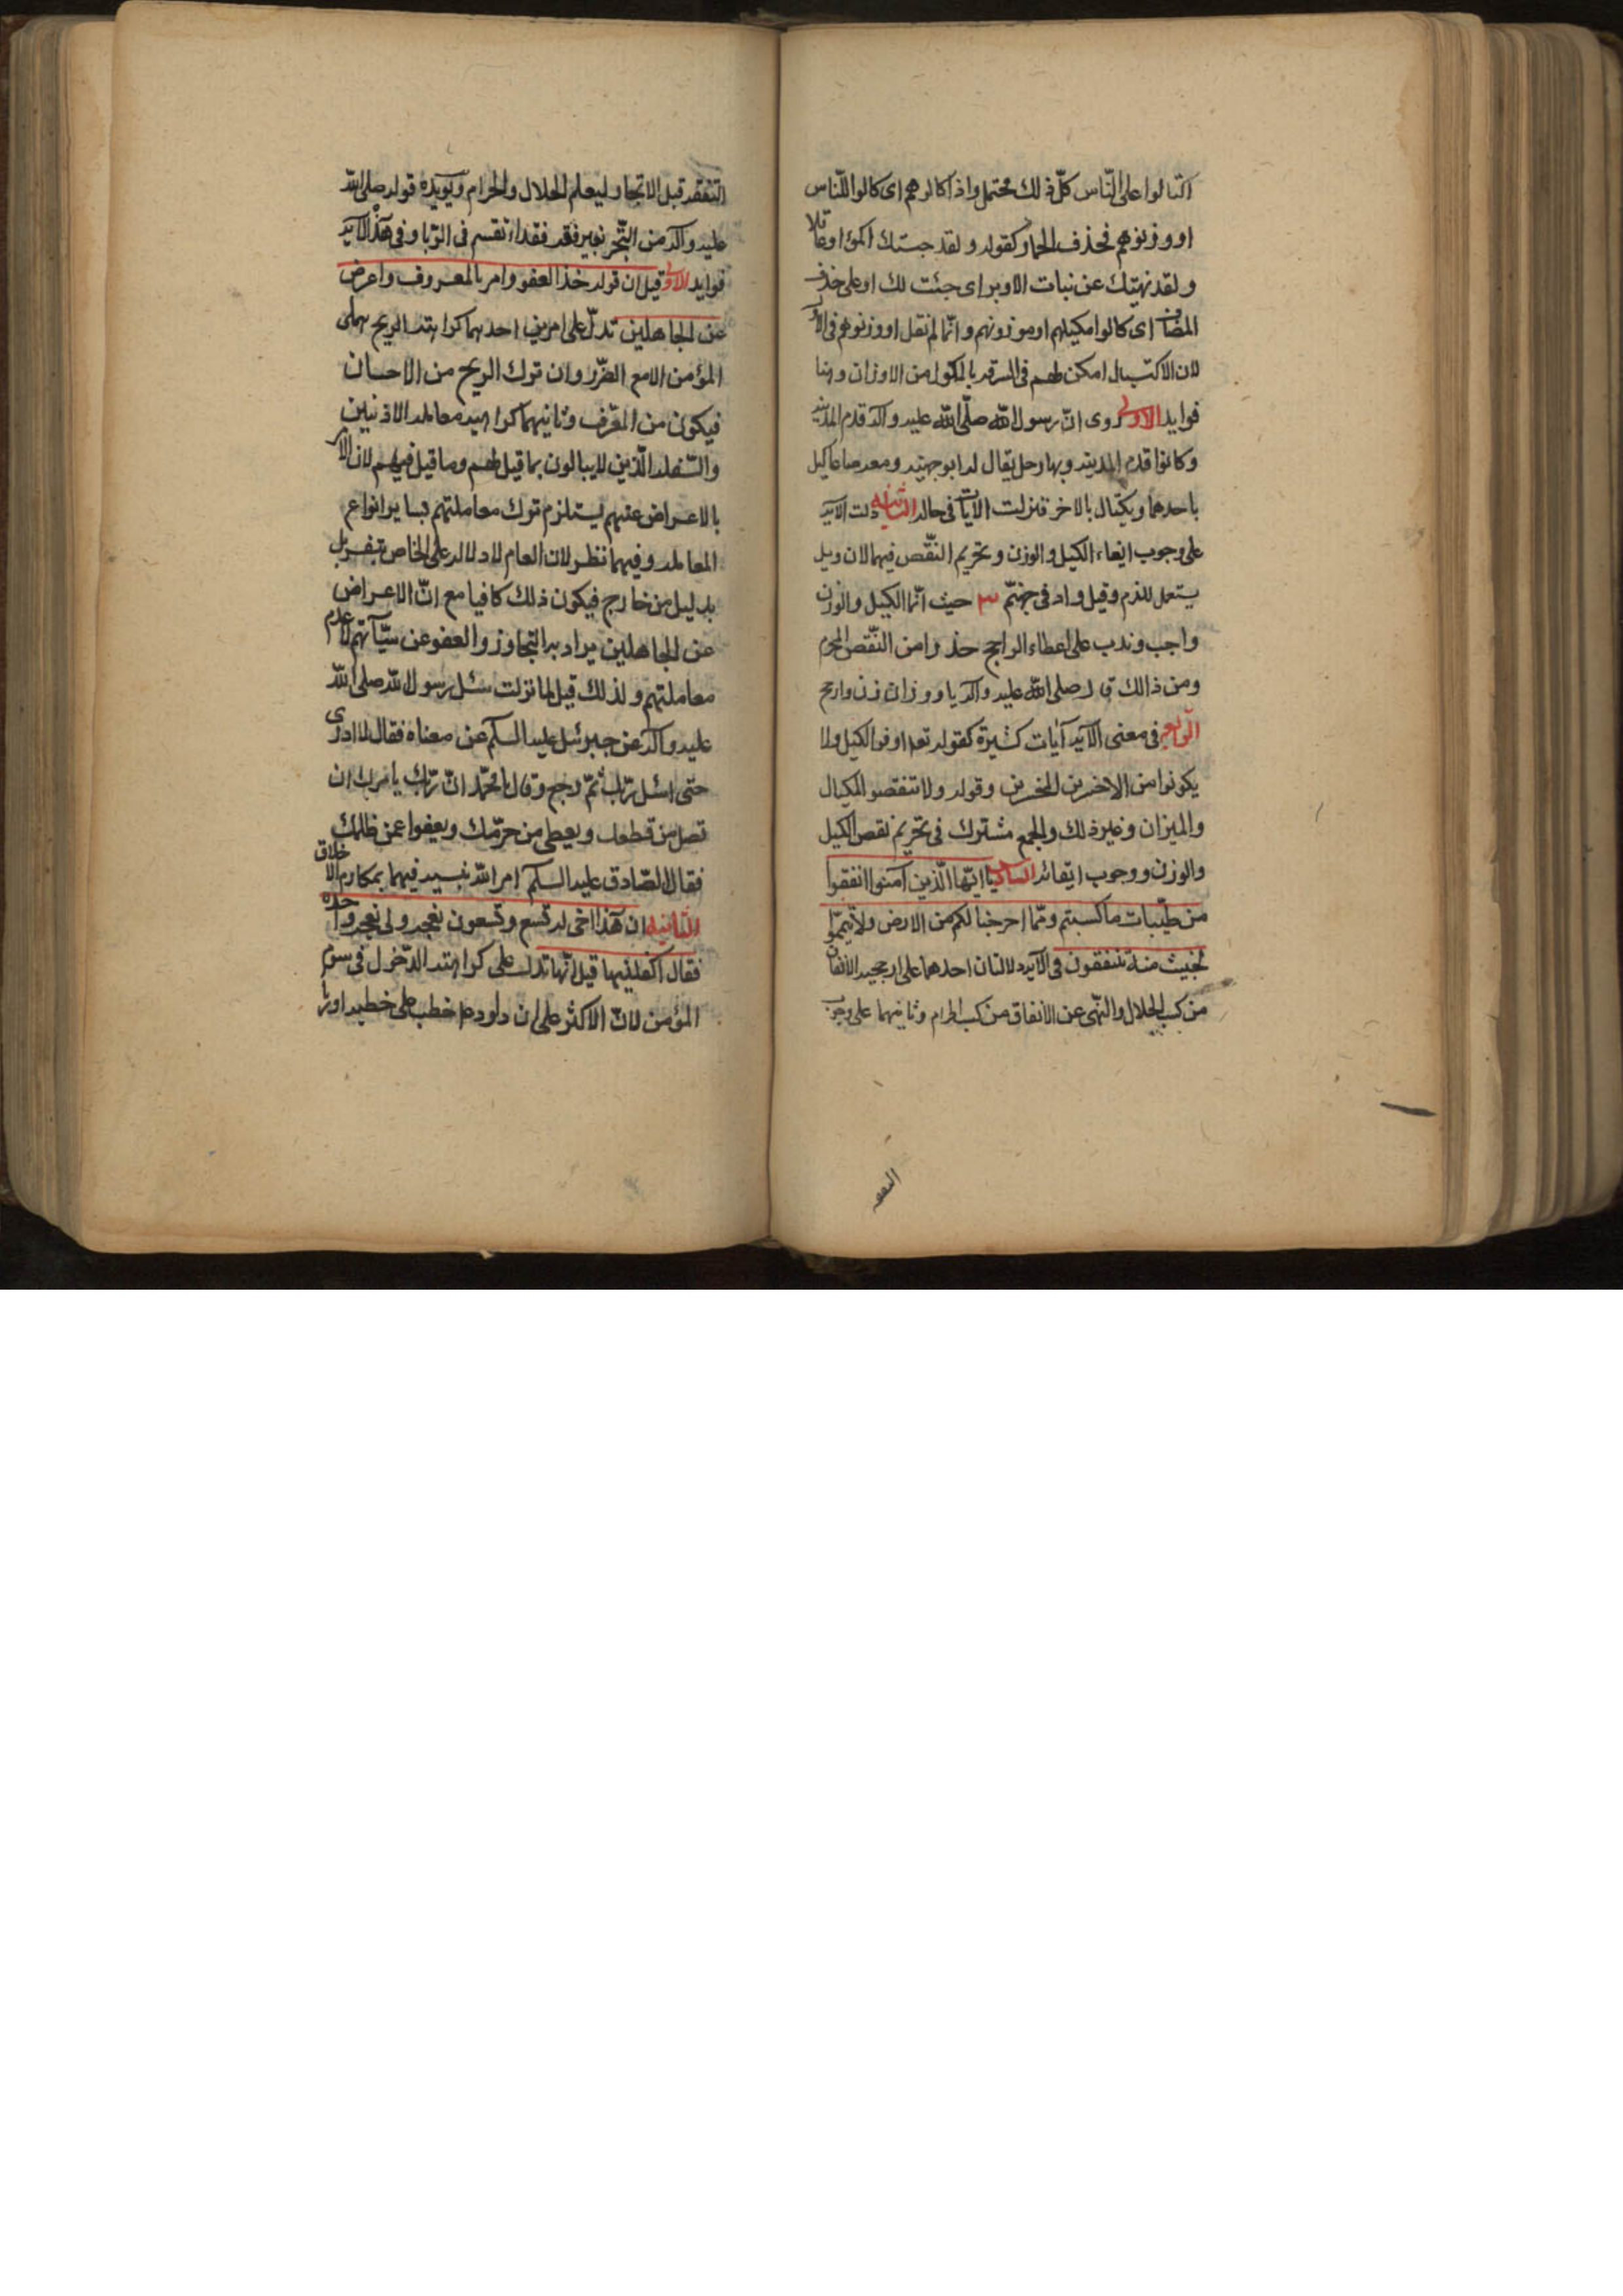 اكتالوا على النّاس كلّ ذلك محتمل واذا كالوهم اى كالوا للّناس
او وزنوهم فحذف الجار كقوله ولقد جنيتك اكمؤا وعساقلا
ولقد نهيتك عن نبات الاوبر اى جئت لك او على حذف
المضاف اى كالوا مكيلهم او موزونهم وانّما لم نقل او وزنوهم فى الاوّل
لان الاكتيال امكن لهم فى السرقه بالمكول من الاوزان وهنا
فوايد الاولى روى انّ رسول الله صلّى الله عليه وآله قدم المدينه
وكانوا قدم المدينه وبها رجل يقال له ابو جهينه ومعه صاعا كيل
باحدهما ويكتال بالاخر فنزلت الايات فى حاله الثانيه دلت الايه
على وجوب ايفاء الكيل والوزن وتحريم النّقص فيهما لان ويل
يستعمل للذم وقيل واد فى جهنّم ٣ حيث انّما الكيل والوزن
واجب وندب على اعطاء الراجح حذرا من النّقص المحرم
ومن ذالك قال صلى الله عليه وآله يا ووزان زن وارجح
الرابعه فى معنى الآيه آيات كثيرة كقوله تعه اوفوا الكيل ولا
يكونوا من الاخرين المخسرين وقوله ولا تنقصوا المكيال
والميزان وغير ذلك والجمع مشترك فى تحريم نقص الكيل
والوزن ووجوب ايفائه السادس يا ايّها الّذين آمنوا انفقوا
من طيّبات ما كسبتم وممّا اخرجنا لكم من الارض ولا تيمّموا
لخبيث منه تنفقون فى الآيه دلالتان احدهما على الانفاق
من كسب الحلال والنّهى عن الانفاق من كسب الحرام وثانيهما على وجوب
التفقه
التفقه قبل الاتجار ليعلم الحلال والحرام ويؤيده قوله صلى الله
عليه وآله من اتّجر بغير فقه فقد ارتقسم فى الرّبا وفى هذه الآيه
فوايد الاولى قيل ان قوله خذ العفو وامر بالمعروف واعرض
عن الجاهلين تدلّ على امرين احدهما كراهته الربح على
المؤمن الا مع الضّرر وان ترك الربح من الاحسان
فيكون من العرف وثانيهما كراهيه معامله الاذنين
والسّفله الّذين لا يبالون بما قيل لهم وما قيل فيهم لان الامر
بالاعراض عنهم يستلزم ترك معاملتهم بساير انواع
المعامله وفيهما نظر لان العام لا دلاله على الخاص
بدليل من خارج فيكون ذلك كافيا مع انّ الاعراض
عن الجاهلين يراد به التجاوز والعفو عن سيّآتهم لا عدم
معاملتهم ولذلك قيل لما نزلت سئل رسول الله صلى الله
عليه وآله عن جبرئيل عليه السلم عن معناه فقال لا ادرى
حتى اسئل ربّك ثمّ رجع وقال يا محمّد انّ ربّك يامرك ان
تصل من قطعك ويعطى من حرّمك ويعفوا عمن ظلمك
فقال الصّادق عليه السلم امر الله نبيه فيهما بمكارم الاخلاق
الثانيه ان هذا اخى له تسع وتسعون نعجه ولى نعجه واحده
فقال اكفلنيها قيل انّها تدل على كراهته الدّخول فى سوم
المؤمن لانّ الاكثر على ان داود ع خطب على خطبه اوريا